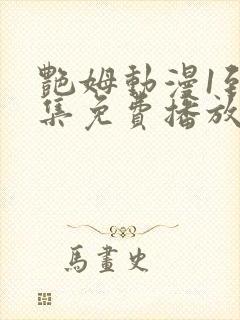 艷姆動漫1至
集免費播放
馬畫史